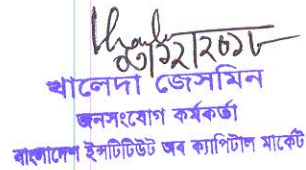 ০৩/১২/২০১৮
খালেদা জেসমিন
জনসংযোগ কর্মকর্তা
বাংলাদেশ ইন্সটিটিউট অব ক্যাপিটাল মার্কেট